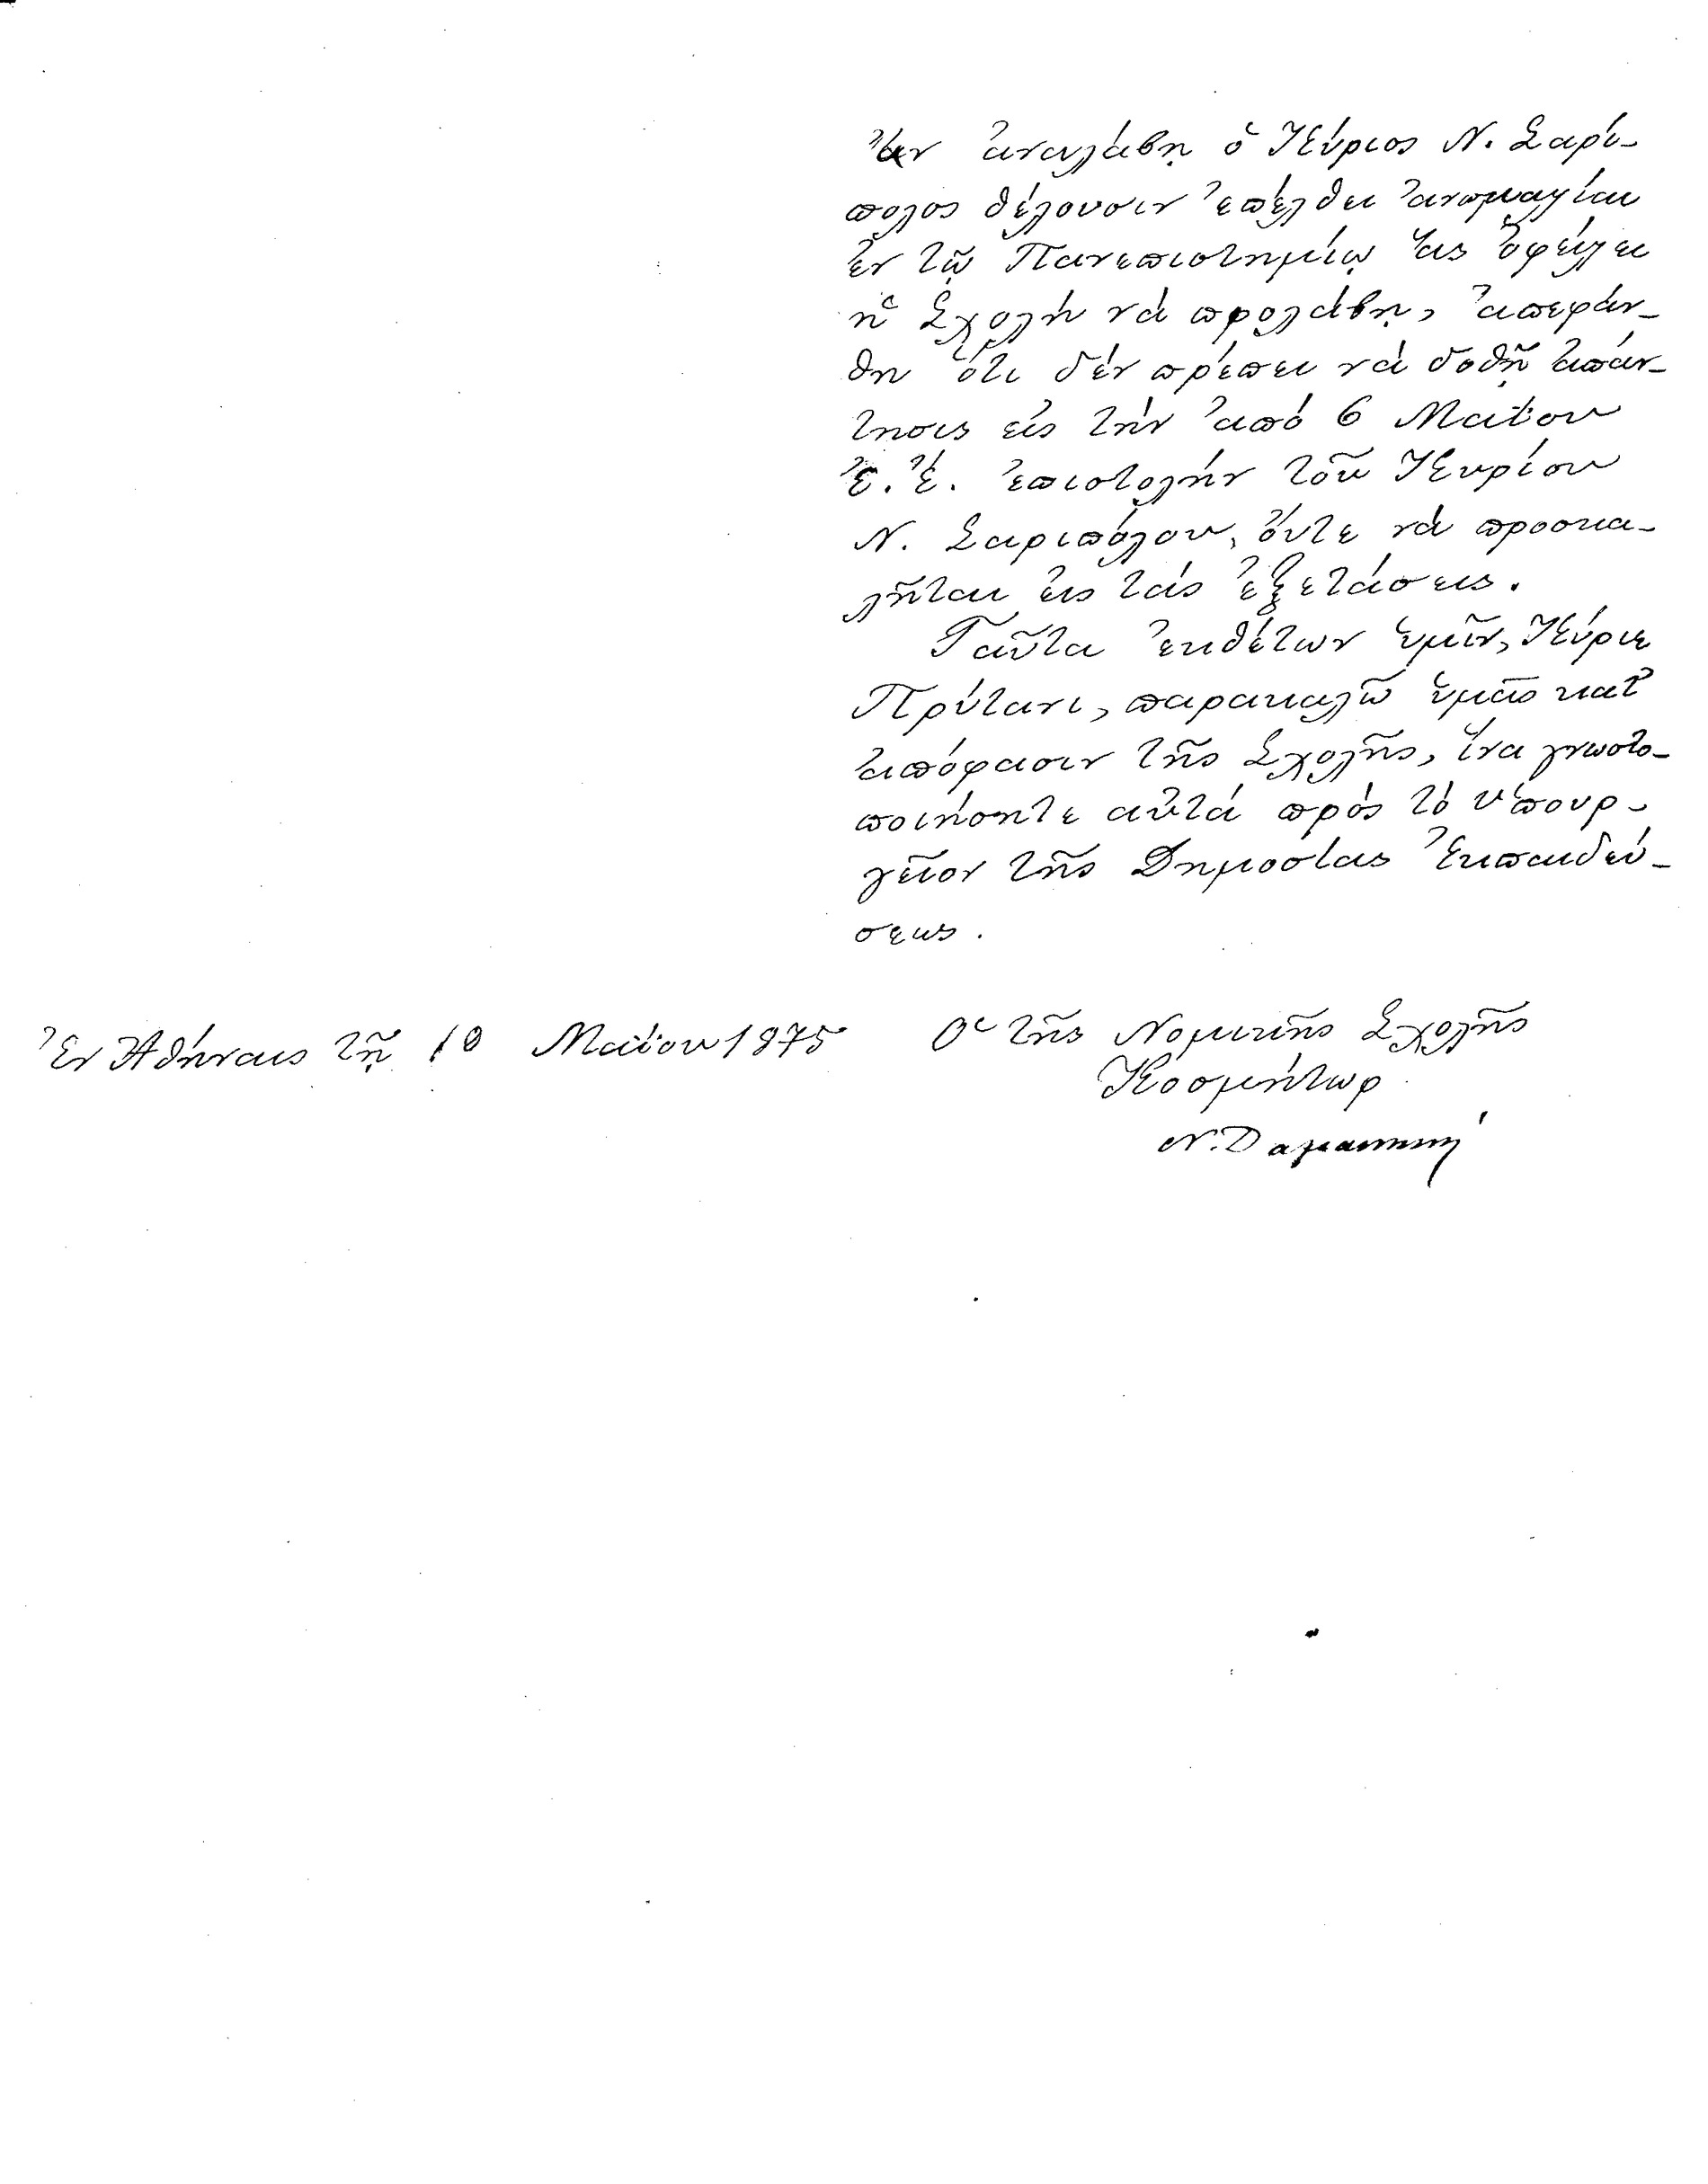 ἄν ἀναλάβῃ ὁ Κύριος Ν. Σαρί-
πολος θέλουσιν ἐπέλθει ἀνωμαλίαι
ἐν τῷ Πανεπιστημίῳ ἅς ὀφείλει
ἡ Σχολὴ νά προλάβῃ, ἀπεφάν-
θη ὅτι δέν πρέπει νά δοθῇ ἀπάν-
τησις εἰς τήν ἀπό 6 Μαΐου
ἐ. ἔ. ἐπιστολήν τοῦ Κυρίου
Ν. Σαριπόλου, ὄυτε νά προσκα-
λῆται εἰς τάς ἐξετάσεις.
Ταῦτα ἐκθέτων ὑμῖν, Κύριε
Πρύτανι, παρακαλῶ ὑμᾶς κατ᾿
ἀπόφασιν τῆς Σχολῆς, ἵνα γνωστο-
ποιήσητε αὐτά πρός τό Ὑπουρ-
γεῖον τῆς Δημοσίας Ἐκπαιδεύ-
σεως.
Ἐν Ἀθήναις τῇ 10 Μαΐου 1875
Ὁ τῆς Νομικῆς Σχολῆς
Κοσμήτωρ
Ν. Δαμασκηνός